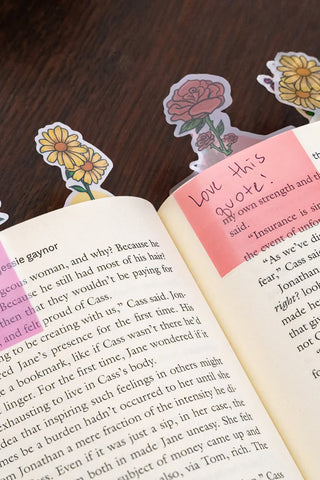 essie gaynor
geous woman, and why? Because he
Because he still had most of his hair?
then that they wouldn't be paying for
and felt proud of Cass.
ng to be creating with us," Cass said. Jon-
red Jane's presence for the first time. His
a bookmark, like if Cass wasn't there he'd
finger. For the first time, Jane wondered if it
exhausting to live in Cass's body.
dea that inspiring such feelings in others might
mes be a burden hadn't occurred to her until she
om Jonathan a mere fraction of the intensity he di-
Cass. Even if it was just a sip, in her case, the
both in made Jane uneasy. She felt
subject of money came up and
also, via Tom, rich. The
Love this
quote!
my own strength and th
said.
"Insurance is sim
the event of unfor
"As we've di
fear," Cass sa
Jonathan
right?
made he
that
not C
"